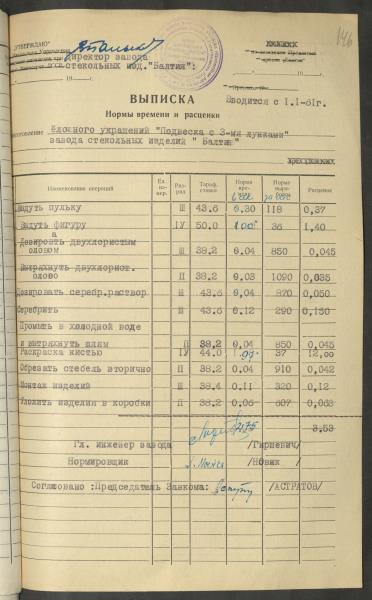 146
„УТВЕРЖДАЮ"
директор завода
стекольных изд. "Балтия":
19 г.
ВЫПИСКА
Нормы времени и расценки
Вводится с 1.1-61г.
Наименование ёлочного украшений "Подвеска с 3-мя лунками"
завода стекольных изделий " Балтия"
Наименование операций Раз-ряд Тариф. Норма вре- Норма выра- Расценки
Выдуть пульку III 43.6 0,30 118 0,37
Выдуть фигуру IУ 50.0 1.00 36 1,40
Дозировать двухлористым
оловом III 38.2 0.04 850 0,045
Вытряхнуть двухлорист.
олово II 38.2 0.03 1090 0,035
Дозировать серебр.раствор III 43.6 0,04 870 0,050
Серебрить III 43.6 0.12 290 0,150
Промыть в холодной воде
и вытряхнуть шлям II 38.2 0.04 850 0,045
Раскраска кистью IУ 44.0 37 12,00
Обрезать стебель вторично II 38.2 0.04 910 0,042
Монтаж изделий II 38.4 0.11 320 0,12
Уложить изделия в коробки II 38.2 0.06 607 0,063
3.53
Гл. инженер завода /Гиркевич/
Нормировщик /Новик /
Согласовано :Председатель Завкома: /АСТРАТОВ/